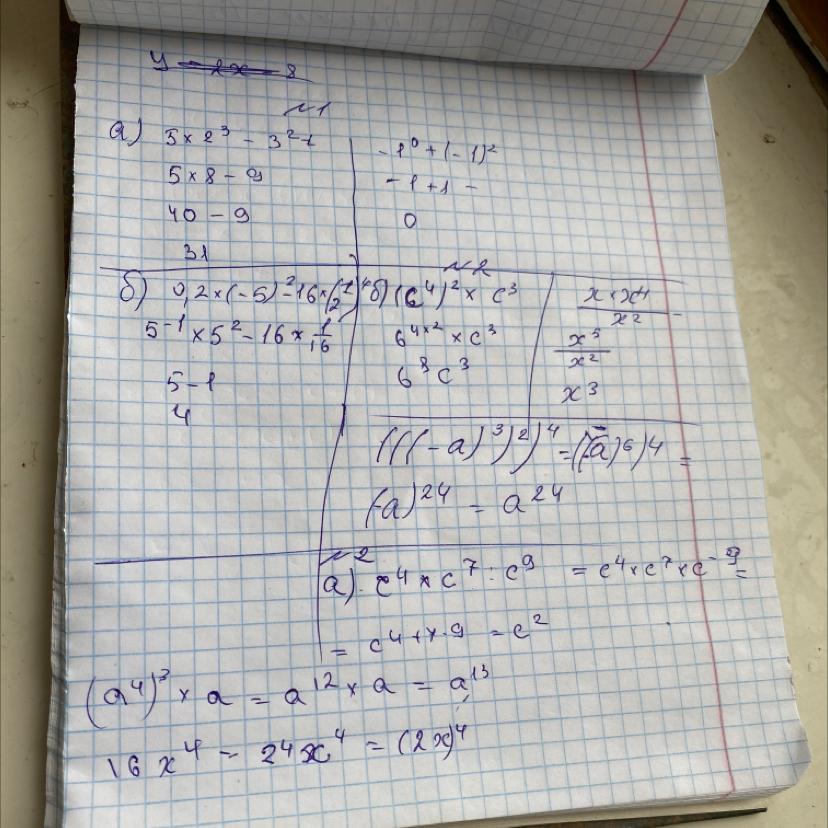 y = 2x - 8
№1
а) 5 × 2³ - 3²
5 × 8 - 9
40 - 9
31
-1⁰ + (-1)²
-1 + 1 -
0
б) 0,2 × (-5)² - 16 × (1/2)⁴
5⁻¹ × 5² - 16 × 1/16
5 - 1
4
№2
б) (c⁴)² × c³
6⁴ˣ² × c³
6⁸ c³
x⁵/x²
x³
(((-a)³)²)⁴ = ((-a)⁶)⁴ =
(-a)²⁴ = a²⁴
№2
а) c⁴ × c⁷ : c⁹ = c⁴ × c⁷ × c⁻⁹ =
= c⁴⁺⁷⁻⁹ = c²
(a⁴)³ × a = a¹² × a = a¹³
16x⁴ - 2⁴x⁴ = (2x)⁴